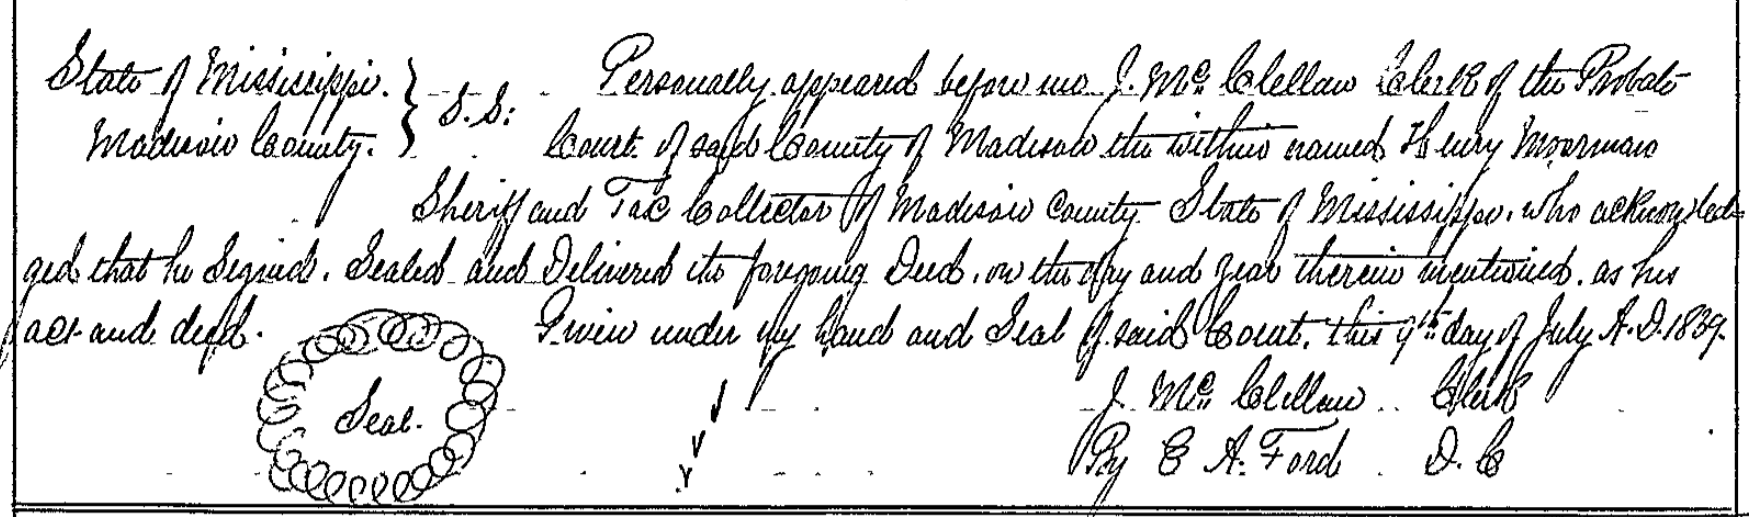 State of Mississippi. } S.S: Personally appeared before me J. Mc. Clellan Clerk of the Probate
Madison County. } Court of said County of Madison the within named Henry Moorman
Sheriff and Tax Collector of Madison County State of Mississippi, who acknowled-
ged that he Signed, Sealed and Delivered the foregoing Deed, on the day and year therein mentioned, as his
act and deed. Given under my hand and Seal of said Court, this 9th day of July A.D. 1839.
J. Mc. Clellan Clerk
Seal.
By E A. Ford D. C